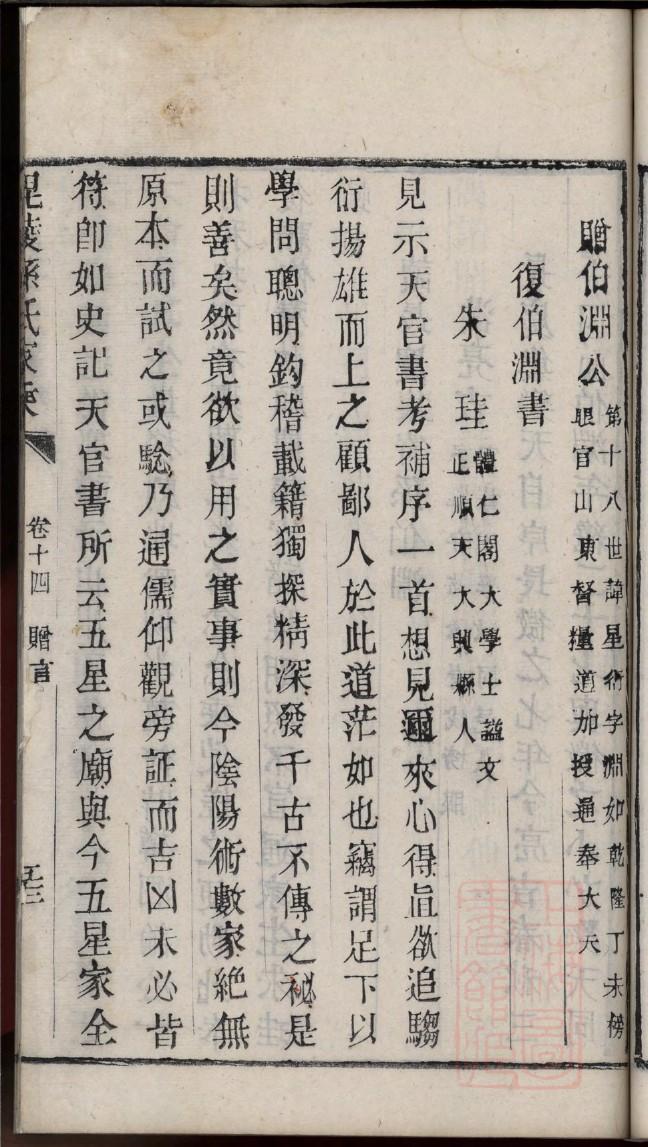 贈伯淵公 第十八世諱星衍字淵如乾隆丁未榜
眼官山東督糧道加授通奉大夫
復伯淵書
朱珪 體仁閣大學士謚文
正順天大興縣人
見示天官書考補序一首想見邇來心得直欲追騶
衍揚雄而上之顧鄙人於此道茫如也竊謂足下以
學問聰明鈎稽載籍獨探精深發千古不傳之秘是
則善矣然竟欲以用之實事則今陰陽術數家絕無
原本而試之或驗乃通儒仰觀旁証而吉凶未必皆
符卽如史記天官書所云五星之廟與今五星家全
毘陵孫氏家乘 卷十四 贈言